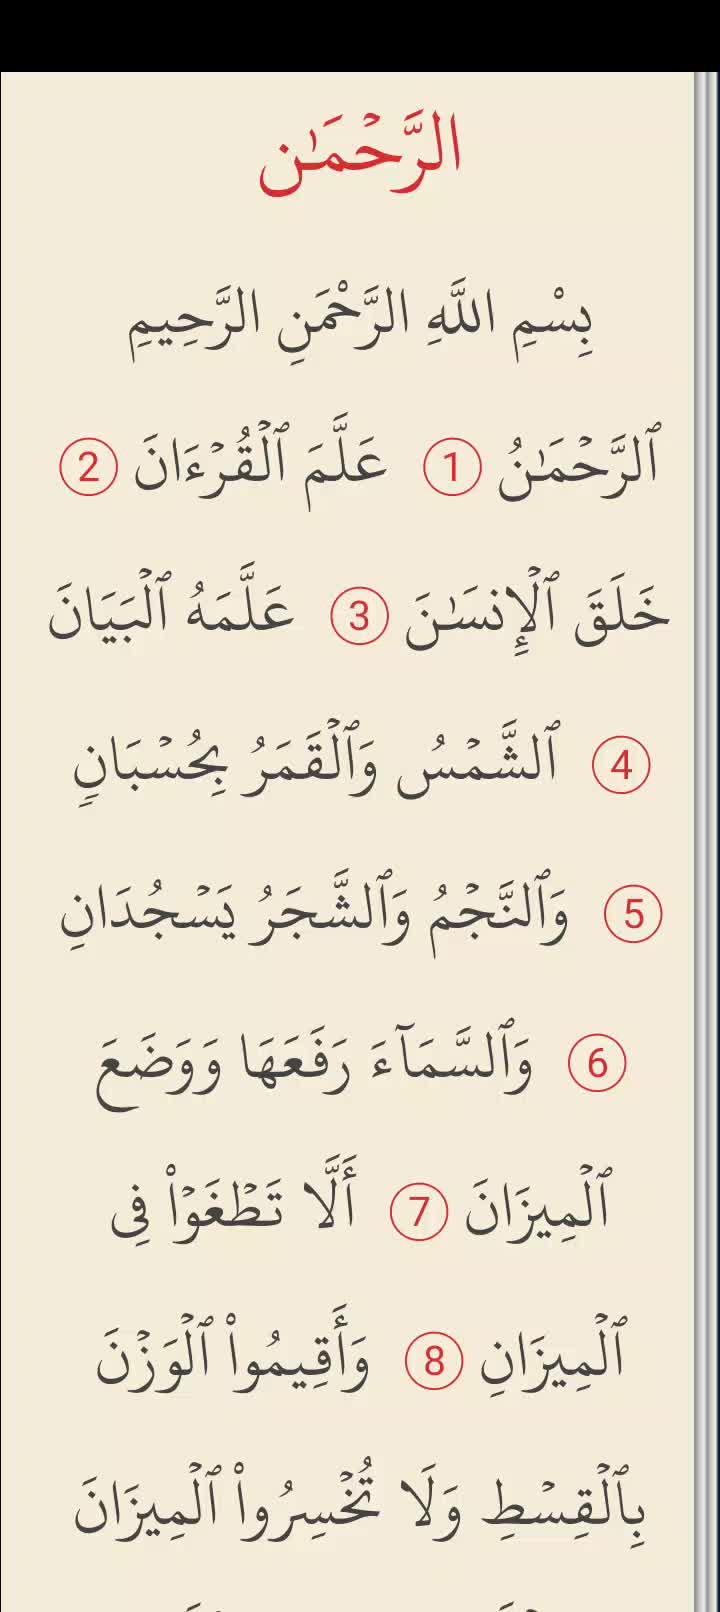 الرَّحۡمَٰن
بِسْمِ اللَّهِ الرَّحْمَنِ الرَّحِيمِ
ٱلرَّحۡمَٰنُ 1 عَلَّمَ ٱلۡقُرۡءَانَ 2
خَلَقَ ٱلۡإِنسَٰنَ 3 عَلَّمَهُ ٱلۡبَيَانَ
4 ٱلشَّمۡسُ وَٱلۡقَمَرُ بِحُسۡبَانٖ
5 وَٱلنَّجۡمُ وَٱلشَّجَرُ يَسۡجُدَانِ
6 وَٱلسَّمَآءَ رَفَعَهَا وَوَضَعَ
ٱلۡمِيزَانَ 7 أَلَّا تَطۡغَوۡاْ فِي
ٱلۡمِيزَانِ 8 وَأَقِيمُواْ ٱلۡوَزۡنَ
بِٱلۡقِسۡطِ وَلَا تُخۡسِرُواْ ٱلۡمِيزَانَ